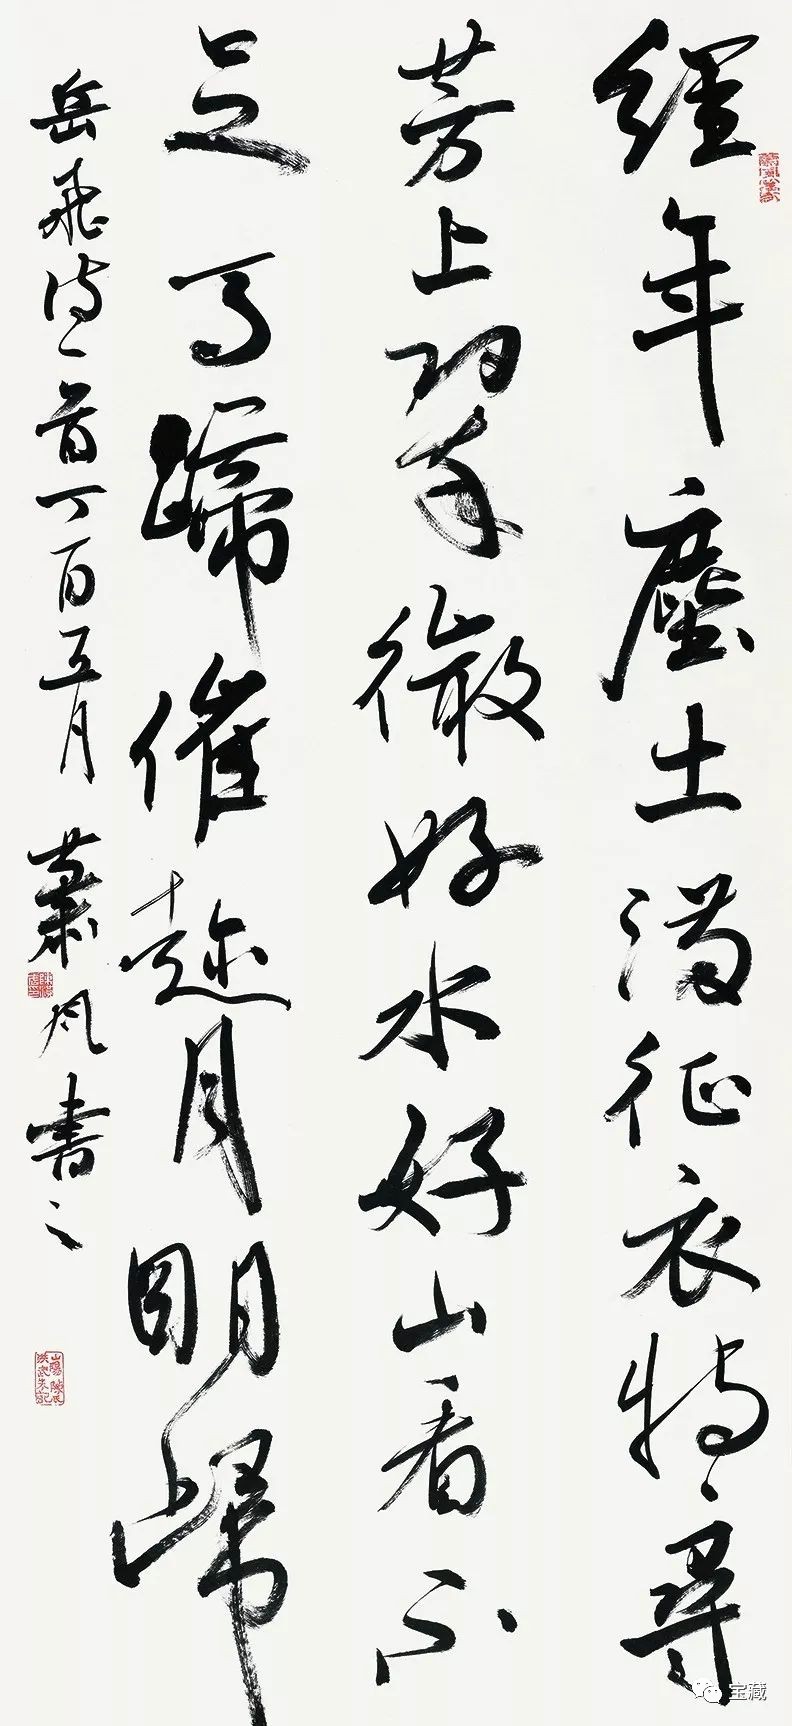 經年塵土滿征衣特〻尋
芳上翠微好水好山看不
足馬蹄催趁月明歸
岳飛詩一首丁酉五月 蕭風書之
宝藏